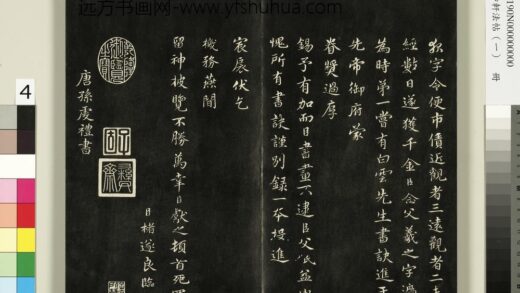 远方书画网-www.yfshuhua.com
𫝊字令便市債近觀者三遠觀者二
經數日遂獲千金臣念父羲之字
為時第一嘗有白雲先生書訣進
先帝御府蒙
眷獎過厚
錫予有加而臣書畫不逮臣父
愧所有書訣謹別錄一本投進
宸扆伏乞
機務燕閒
留神披覽不勝萬幸臣獻之頓首死
臣褚遂良臨
唐孫虔禮書
4
190N0000000000
軒法帖（一） 冊